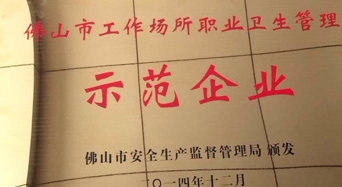 佛山市工作场所职业卫生管理
示范企业
佛山市安全生产监督管理局 颁发
二〇一四年十二月